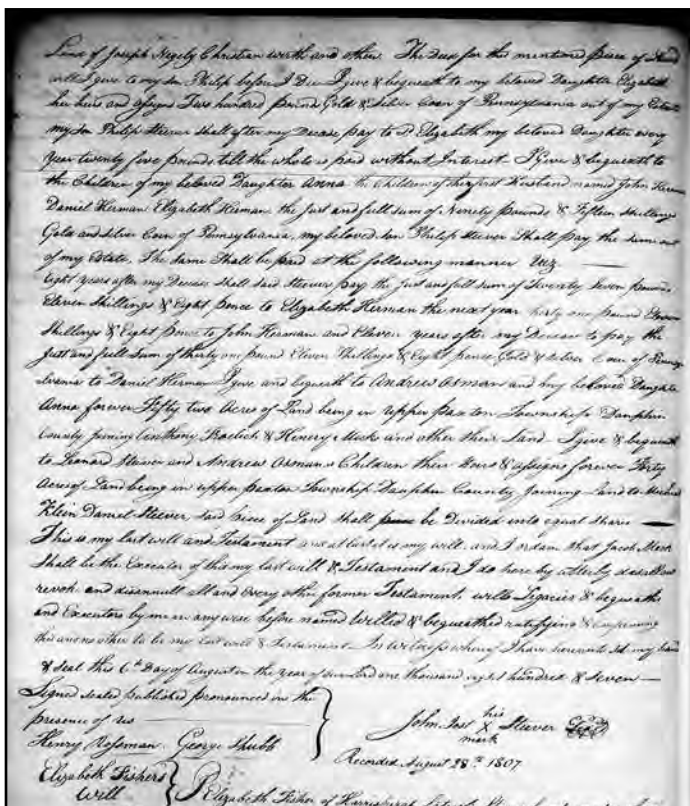 Land of Joseph Negely Christian Werth and others. The Deed for the mentioned Piece of Land
will I give to my Son Philip before I Die. I give & bequeath to my beloved Daughter Elizabeth
her heirs and assigns Two hundred pounds Gold & Silver Coin of Pennsylvania out of my Estate
my Son Philip Steever Shall after my Decease pay to Sd. Elizabeth my beloved Daughter every
Year twenty five pounds till the whole is paid without Interest. I Give & bequeath to
the Children of my beloved Daughter Anna the Children of the first Husband named John Herman
Daniel Herman Elizabeth Herman the Just and full sum of Ninety pounds & Fifteen Shillings
Gold and Silver Coin of Pennsylvania, my beloved Son Philip Steever Shall pay the same out
of my Estate, The same Shall be paid at the following manner Viz —
Eight years after my Decease shall said Steever pay the just and full sum of Twenty Seven pounds
Eleven Shillings & Eight pence to Elizabeth Herman the next year thirty one pound Eleven
Shillings & Eight pence to John Herman and Eleven years after my Decease to pay the
Just and full Sum of thirty one pound Eleven Shillings & Eight pence Gold & Silver Coin of Pennsyl
vania to Daniel Herman I give and bequeth to Andrew Osman and my beloved Daughter
Anna forever Fifty two Acres of Land being in upper paxton Township Dauphin
County Joining Anthony & Henery and other their Land. I give & bequeath
to Leonard Steever and Andrew Osman's Children their Heirs & assigns forever Forty
Acres of Land being in upper paxton Township Dauphin County Joining Land to Michael
Klein Daniel Steever, said piece of Land shall be Divided into equal shares —
This is my last will and Testament and at last it is my will and I ordain that Jacob Meck
Shall be the Executor of this my last will & Testament and I do here by utterly disallow
revoke and disannull all and every other former Testament, wills Legacies & bequeaths
and Executors by me in any wise before named Willed & bequeathed ratifying & confirming
this and no other to be my last will & Testament. In Witness whereof I have hereunto set my hand
& Seal this 6th Day of August in the year of our Lord one thousand eight hundred & Seven —
Signed sealed published pronounced in the
presence of us —
Henry Rossman. George Shubb
his
John Jost X Steever
mark
Recorded August 28th 1807
Elizabeth Fishers
Will
I Elizabeth Fisher of Harrisburg